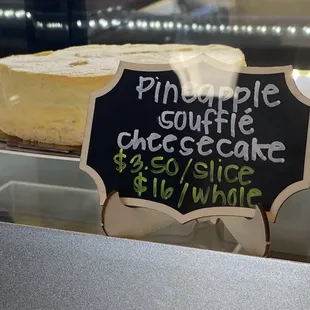 Pineapple
soufflé
cheesecake
$3.50/slice
$16/whole